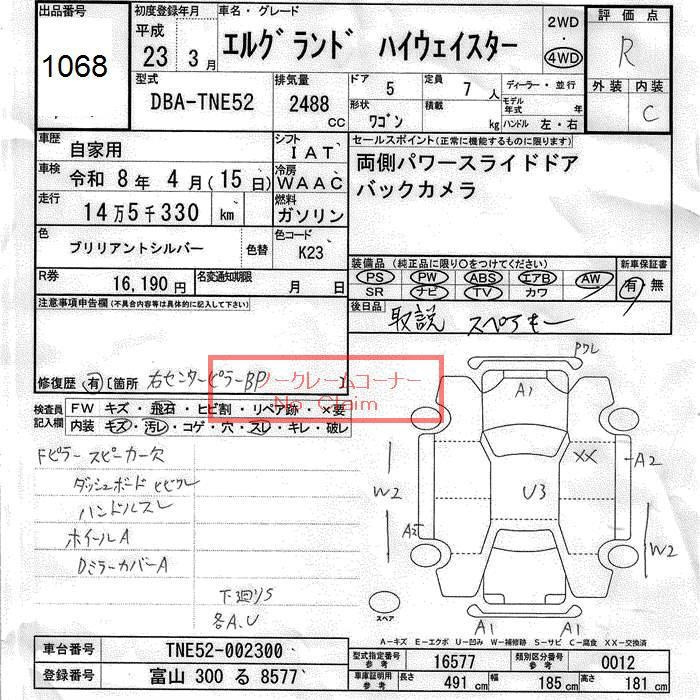 出品番号
1068
初度登録年月
平成
23 3月
車名・グレード
エルグランド ハイウェイスター
2WD
・
4WD
評価点
R
外装 内装
C
型式
DBA-TNE52
排気量
2488
CC
ドア 5
定員 7 人
形状 ワゴン
積載 kg
ディーラー・並行
モデル年式 年
ハンドル 左・右
車歴 自家用
シフト IAT
車検 令和 8年 4月(15日)
冷房 WAAC
走行 14万5千330 km
燃料 ガソリン
色 ブリリアントシルバー 色替
色コード K23
R券 16,190円
名変通知期限 月 日
セールスポイント(正常に機能するものに限ります)
両側パワースライドドア
バックカメラ
装備品(純正品に限り○をつけてください)
PS PW ABS エアB AW
SR ナビ TV カワ
新車保証書
有・無
後日品 取説 スペアキー
注意事項申告欄(不具合内容等は具体的に記入して下さい)
修復歴 有 〔箇所 右センターピラーBP
ノークレームコーナー
No Claim
検査員
記入欄
FW キズ・飛石・ヒビ割・リペア跡・×要
内装 キズ・汚レ・コゲ・穴・スレ・キレ・破レ
Fピラー スピーカー欠
ダッシュボード ヒビワレ
ハンドルスレ
ホイールA
Dミラーカバー A
下廻りS
各A.U
PワレA1
XX
A2
W2
U3
W2
A1
A1
スペア
A-キズ E-エクボ U-凹み W-補修跡 S-サビ C-腐食 XX-交換済
車台番号 TNE52-002300
登録番号 富山 300 る 8577
型式指定番号 参考 16577
類別区分番号 参考 0012
車庫証明用 参考
長さ 491 cm
幅 185 cm
高さ 181 cm